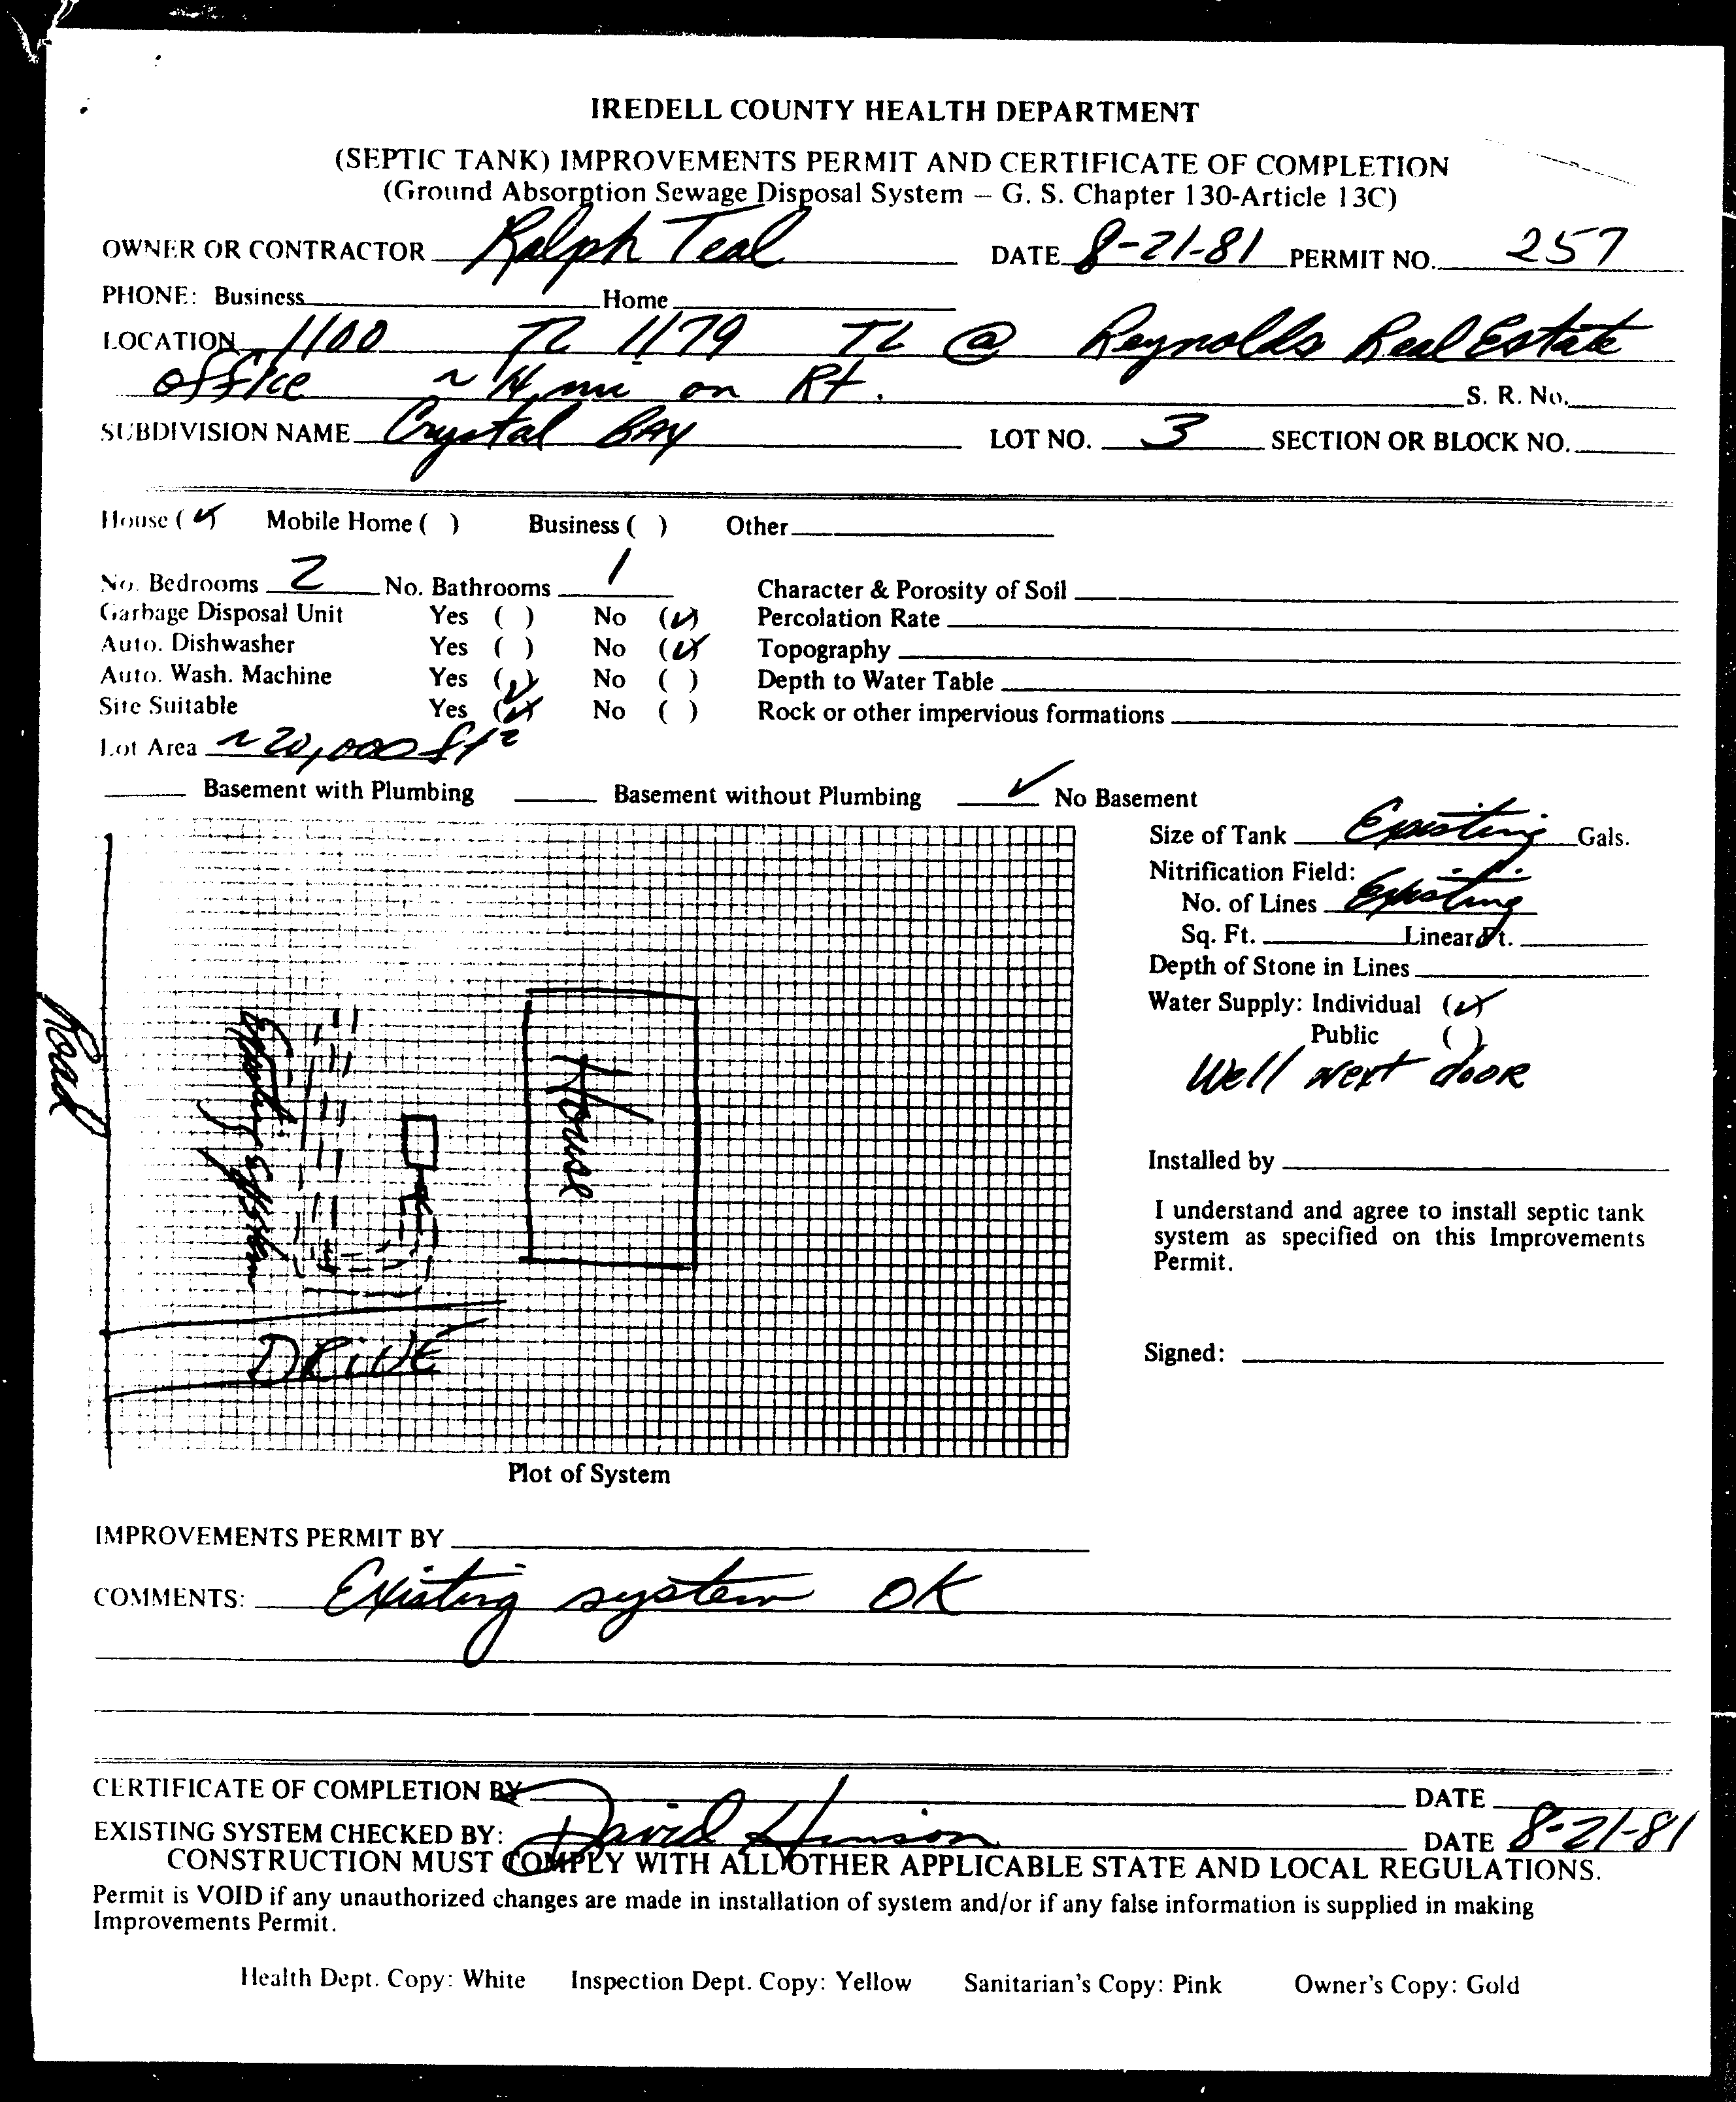 IREDELL COUNTY HEALTH DEPARTMENT
(SEPTIC TANK) IMPROVEMENTS PERMIT AND CERTIFICATE OF COMPLETION
(Ground Absorption Sewage Disposal System — G. S. Chapter 130-Article 13C)
OWNER OR CONTRACTOR Ralph Teal DATE 8-21-81 PERMIT NO. 257
PHONE: Business Home
LOCATION 1100 TL 1179 TL @ Reynolds Real Estate
office ~ 1/4 mi on Rt. S. R. No.
SUBDIVISION NAME Crystal BAY LOT NO. 3 SECTION OR BLOCK NO.
House (✓) Mobile Home ( ) Business ( ) Other
No. Bedrooms 2 No. Bathrooms 1 Character & Porosity of Soil
Garbage Disposal Unit Yes ( ) No (✓) Percolation Rate
Auto. Dishwasher Yes ( ) No (✓) Topography
Auto. Wash. Machine Yes (✓) No ( ) Depth to Water Table
Site Suitable Yes (✓) No ( ) Rock or other impervious formations
Lot Area ~ 20,000 ft²
Basement with Plumbing Basement without Plumbing ✓ No Basement
Size of Tank Existing Gals.
Nitrification Field:
No. of Lines Existing
Sq. Ft. Linear Ft.
Depth of Stone in Lines
Water Supply: Individual (✓)
Public ( )
Well next dooR
Installed by
I understand and agree to install septic tank
system as specified on this Improvements
Permit.
Signed:
Road
Existing System
House
DRiVE
Plot of System
IMPROVEMENTS PERMIT BY
COMMENTS: Existing system OK
CERTIFICATE OF COMPLETION BY DATE
EXISTING SYSTEM CHECKED BY: David Hinson DATE 8-21-81
CONSTRUCTION MUST COMPLY WITH ALL OTHER APPLICABLE STATE AND LOCAL REGULATIONS.
Permit is VOID if any unauthorized changes are made in installation of system and/or if any false information is supplied in making
Improvements Permit.
Health Dept. Copy: White Inspection Dept. Copy: Yellow Sanitarian's Copy: Pink Owner's Copy: Gold